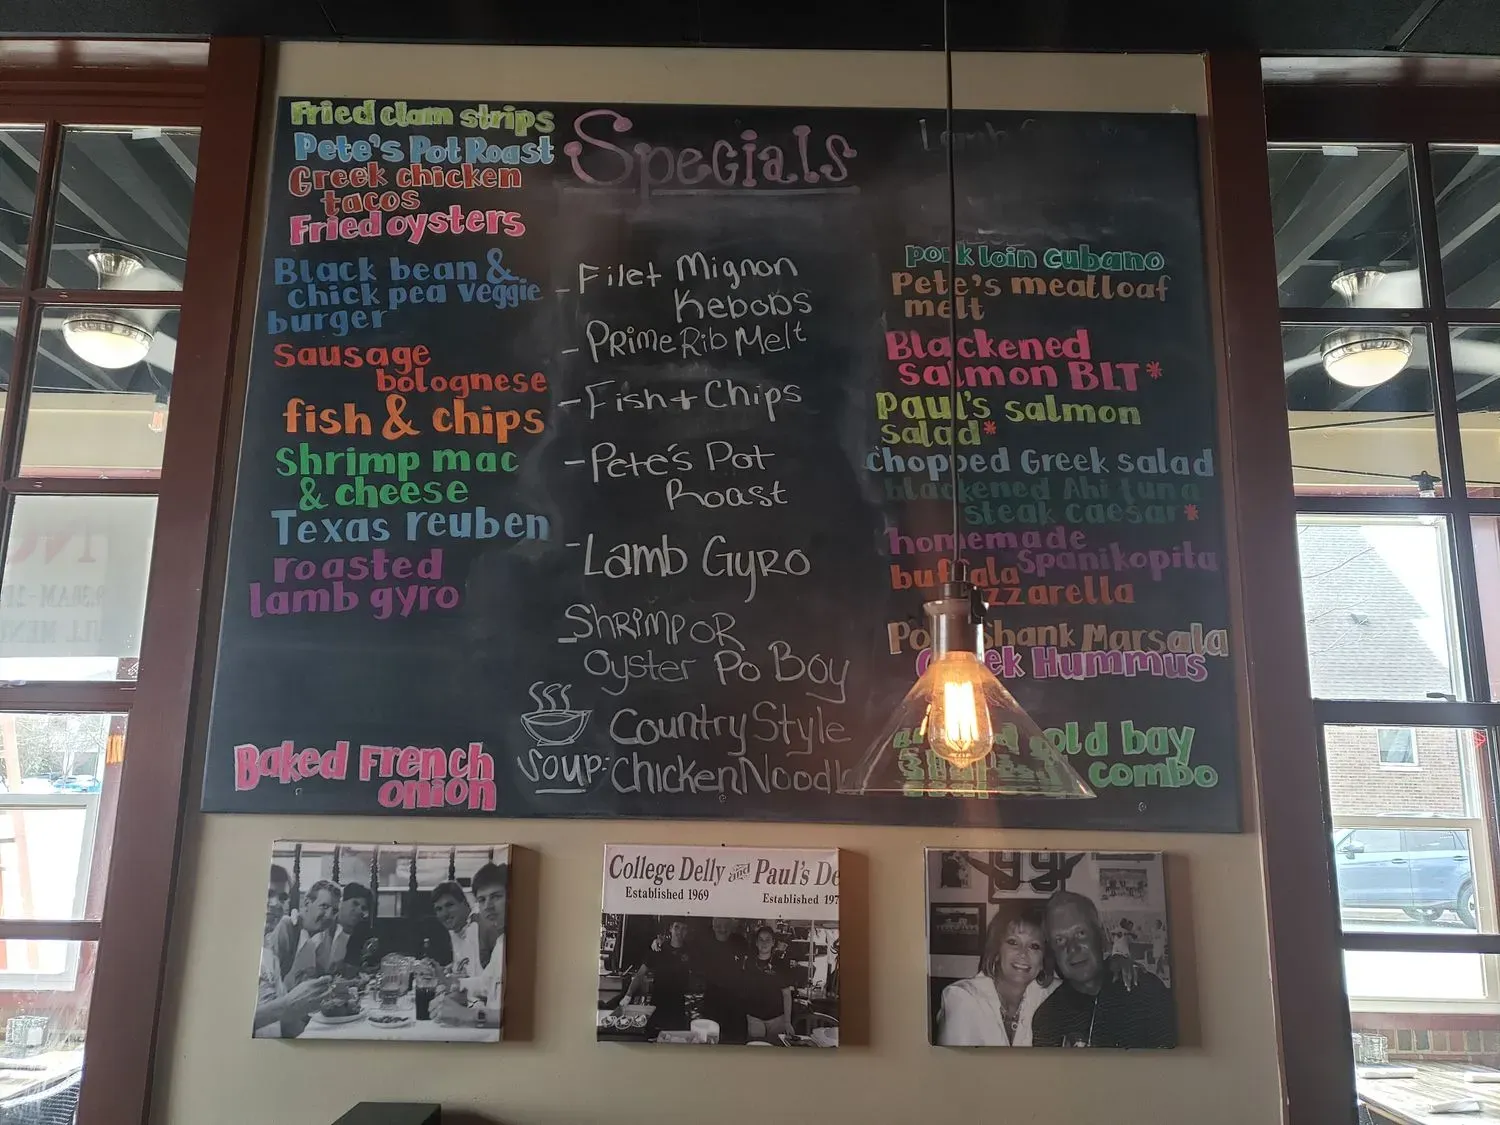 Fried clam strips
Pete's Pot Roast
Greek chicken
tacos
Fried oysters
Black bean &
chick pea veggie
burger
Sausage
bolognese
fish & chips
Shrimp mac
& cheese
Texas reuben
roasted
lamb gyro
Baked French
onion
Specials
- Filet Mignon
Kebobs
- Prime Rib Melt
- Fish + Chips
- Pete's Pot
Roast
- Lamb Gyro
- Shrimp or
Oyster Po Boy
Country Style
Soup: Chicken Noodle
Lamb
pork loin cubano
Pete's meatloaf
melt
Blackened
salmon BLT*
Paul's salmon
salad*
chopped Greek salad
blackened Ahi tuna
steak caesar*
homemade
Spanikopita
buffala
Marsala
Hummus
old bay
combo
College Delly and Paul's De
Established 1969
Established 197